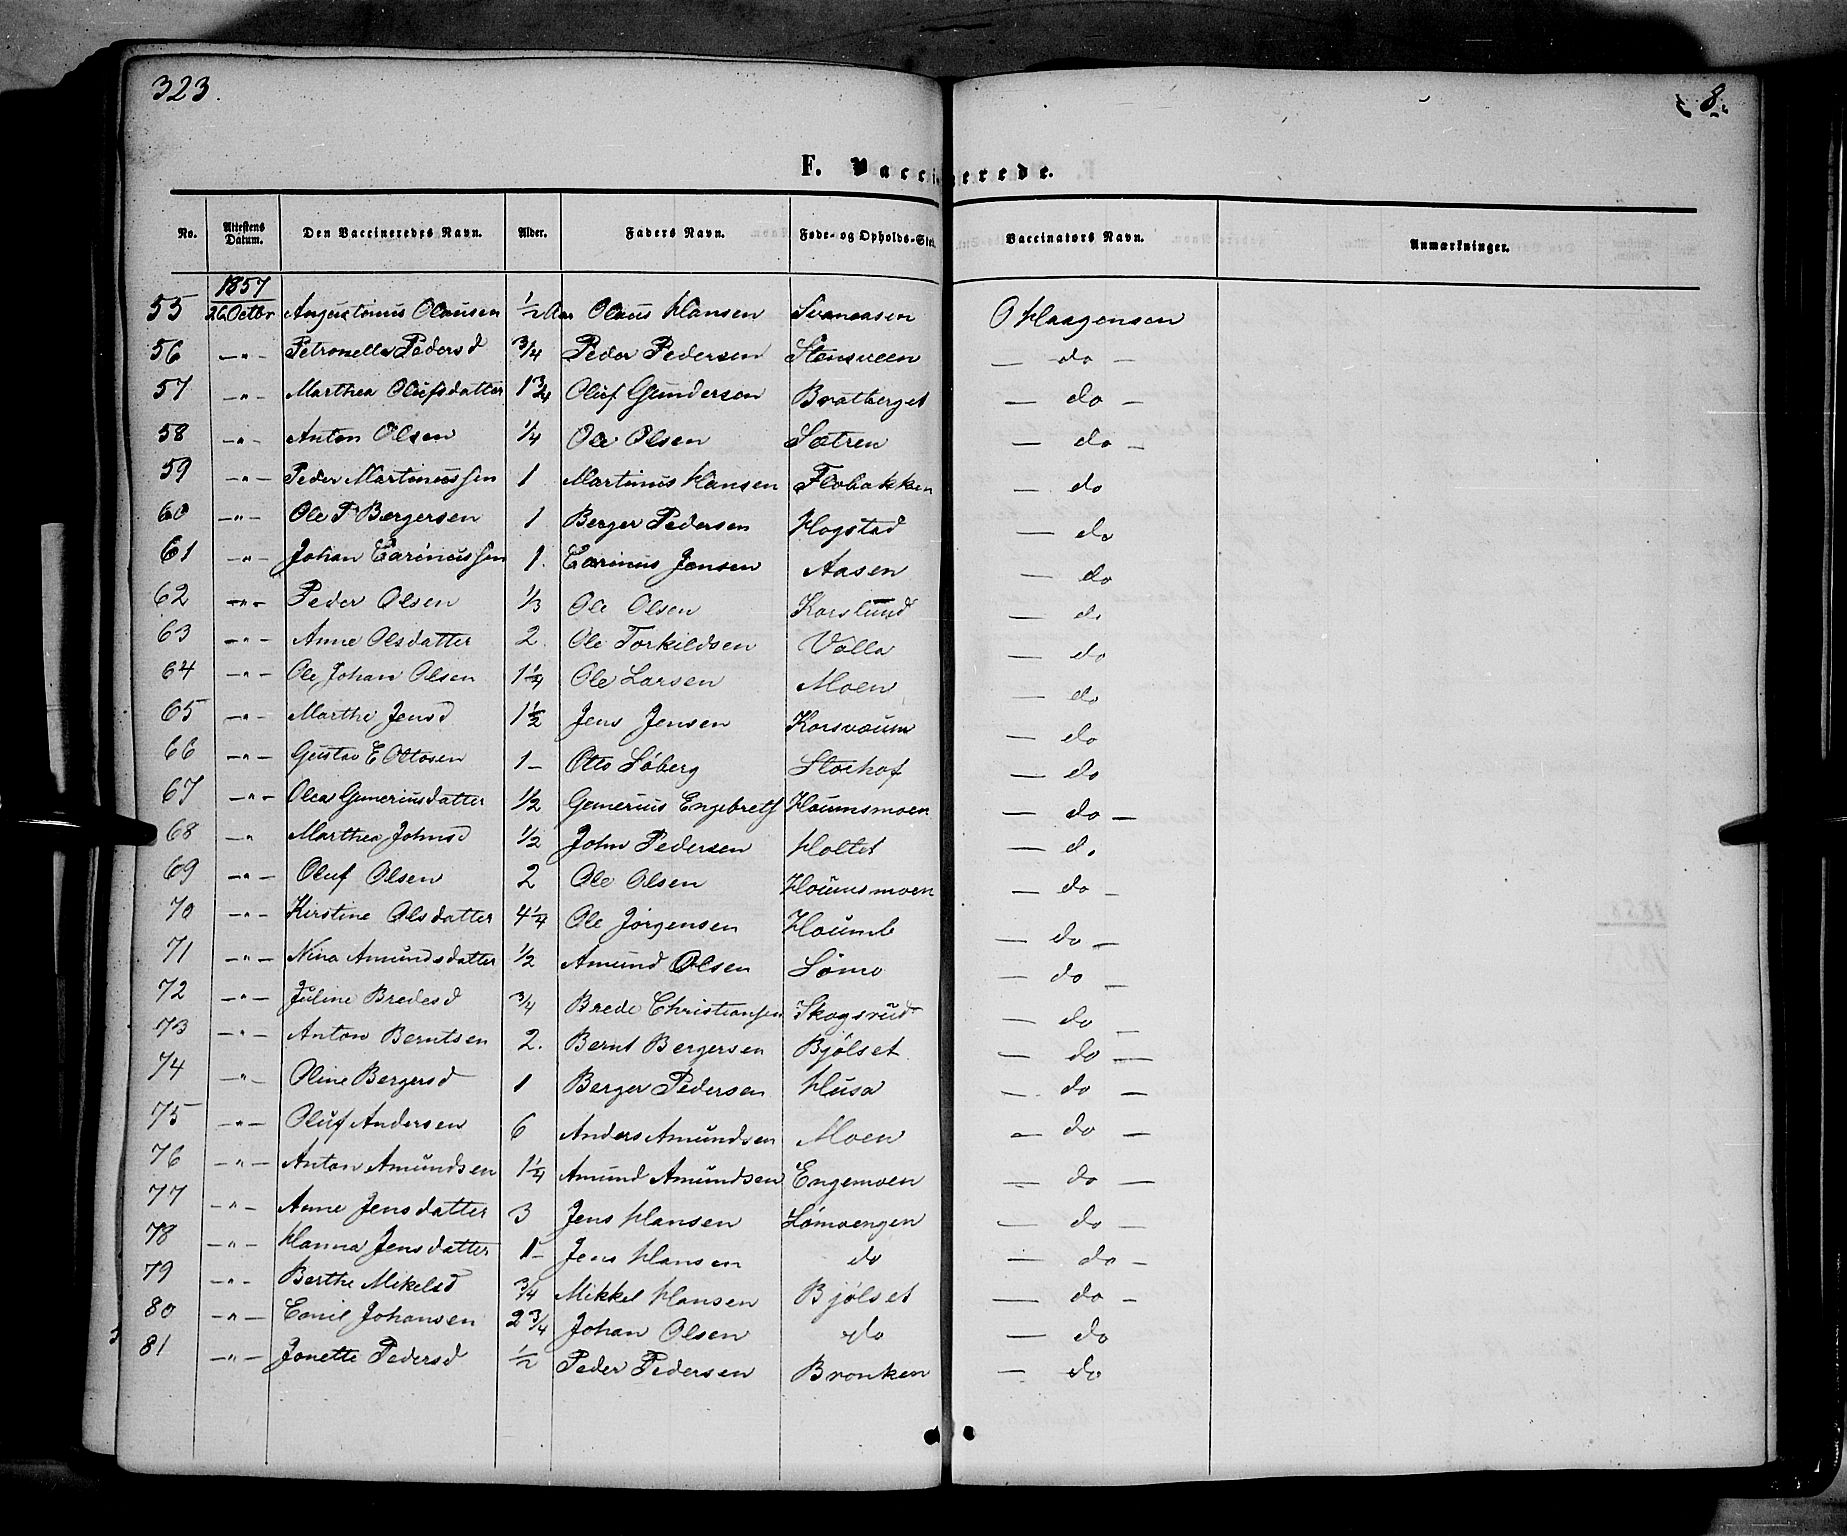 323.
8.
F. Vaccinerede.
No. Attestens Datum. Den Vaccineredes Navn. Alder. Faders Navn. Føde- og Opholds-Sted. Vaccinators Navn. Anmærkninger.
1857
55 26 Octbr Augustinus Olausen 1/2 Aar Olaus Hansen Svenaasen O Haagensen
56 -"- Petronelle Pedersd 3/4 Peder Pedersen Stensveen - do -
57 -"- Marthea Olufsdatter 1 3/4 Oluf Gundersen Bratberget - do -
58 -"- Anton Olsen 1/4 Ole Olsen Sætren - do -
59 -"- Peder Martinussen 1 Martinus Hansen Flobakken - do
60 -"- Ole P Bergersen 1 Berger Pedersen Hogstad - do
61 -"- Johan Earinussen 1. Earinus Jensen Aasen - do
62 -"- Peder Olsen 1/3 Ole Olsen Korslund - do
63 -"- Anne Olsdatter 2. Ole Torkildsen Volla - do
64 -"- Ole Johan Olsen 1 1/4 Ole Larsen Moen - do
65 -"- Marthe Jensd 1 1/2 Jens Jensen - do
66 -"- Gustav E Ottosen 1- Otto Løberg - do
67 -"- Olea Guneriusdatter 1/2 Gunerius Engebretss Houmsmoen - do -
68 -" Marthea Johnsd 1/2 John Pedersen Holtet - do
69 -"- Oluf Olsen 2 Ole Olsen Houmsmoen - do -
70 -"- Kirstine Olsdatter 4 1/4 Ole Jørgensen Houmb - do -
71 -"- Nina Amundsdatter 1/2 Amund Olsen Lømo - do -
72 -"- Juline Bredesd 3/4 Brede Christiansen Skogsrud - do -
73 -"- Anton Berntsen 2. Bernt Bergersen Bjølset - do -
74 -"- Oline Bergersd 1 Berger Pedersen Husa - do -
75 -"- Oluf Andersen 6 Anders Amundsen Moen - do -
76 -"- Anton Amundsen 1 1/4 Amund Amundsen Engemoen - do -
77 -"- Anne Jensdatter 3 Jens Hansen Lømoengen - do -
78 -"- Hanna Jensdatter 1- Jens Hansen do - do -
79 -"- Berthe Mikelsd 3/4 Mikkel Hansen Bjølset - do -
80 -"- Emil Johansen 2 3/4 Johan Olsen do - do
81 -"- Jonette Pedersd 1/2 Peder Pedersen Bronken - do